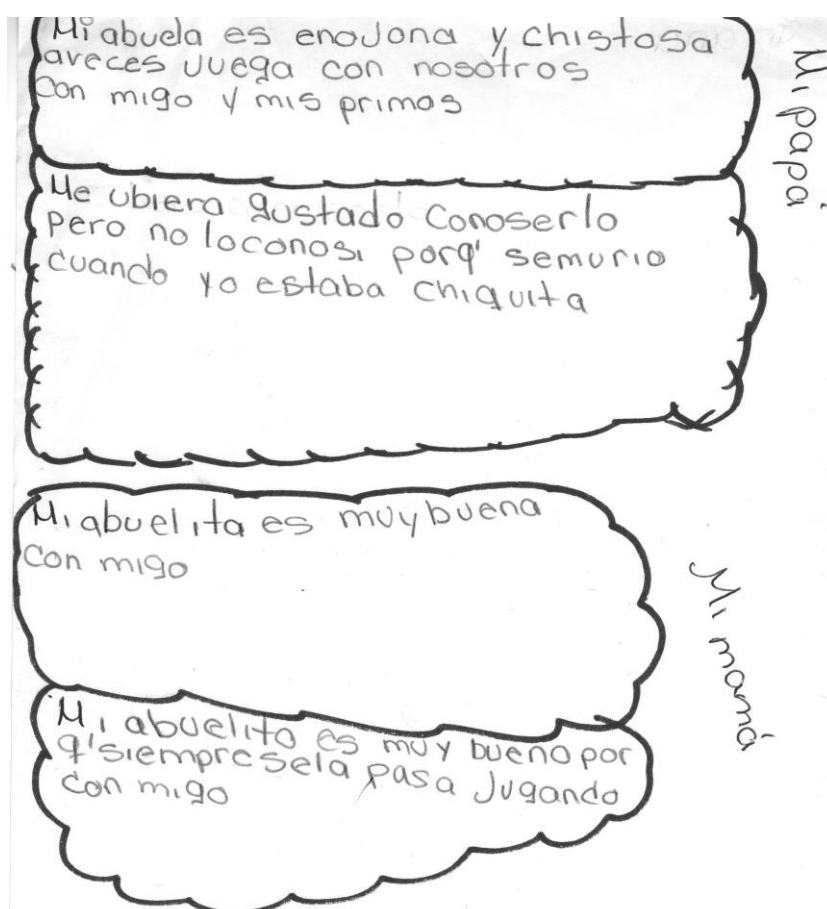 Mi abuela es enoJona y chistosa
aveces Juega con nosotros
con migo y mis primos
Mi papá
Me ubiera gustadó Conoserlo
pero no loconosi porq' semurio
cuando yo estaba chiquita
Mi abuelita es muy buena
con migo
Mi mamá
Mi abuelito es muy bueno por
q' siempre sela pasa Jugando
con migo